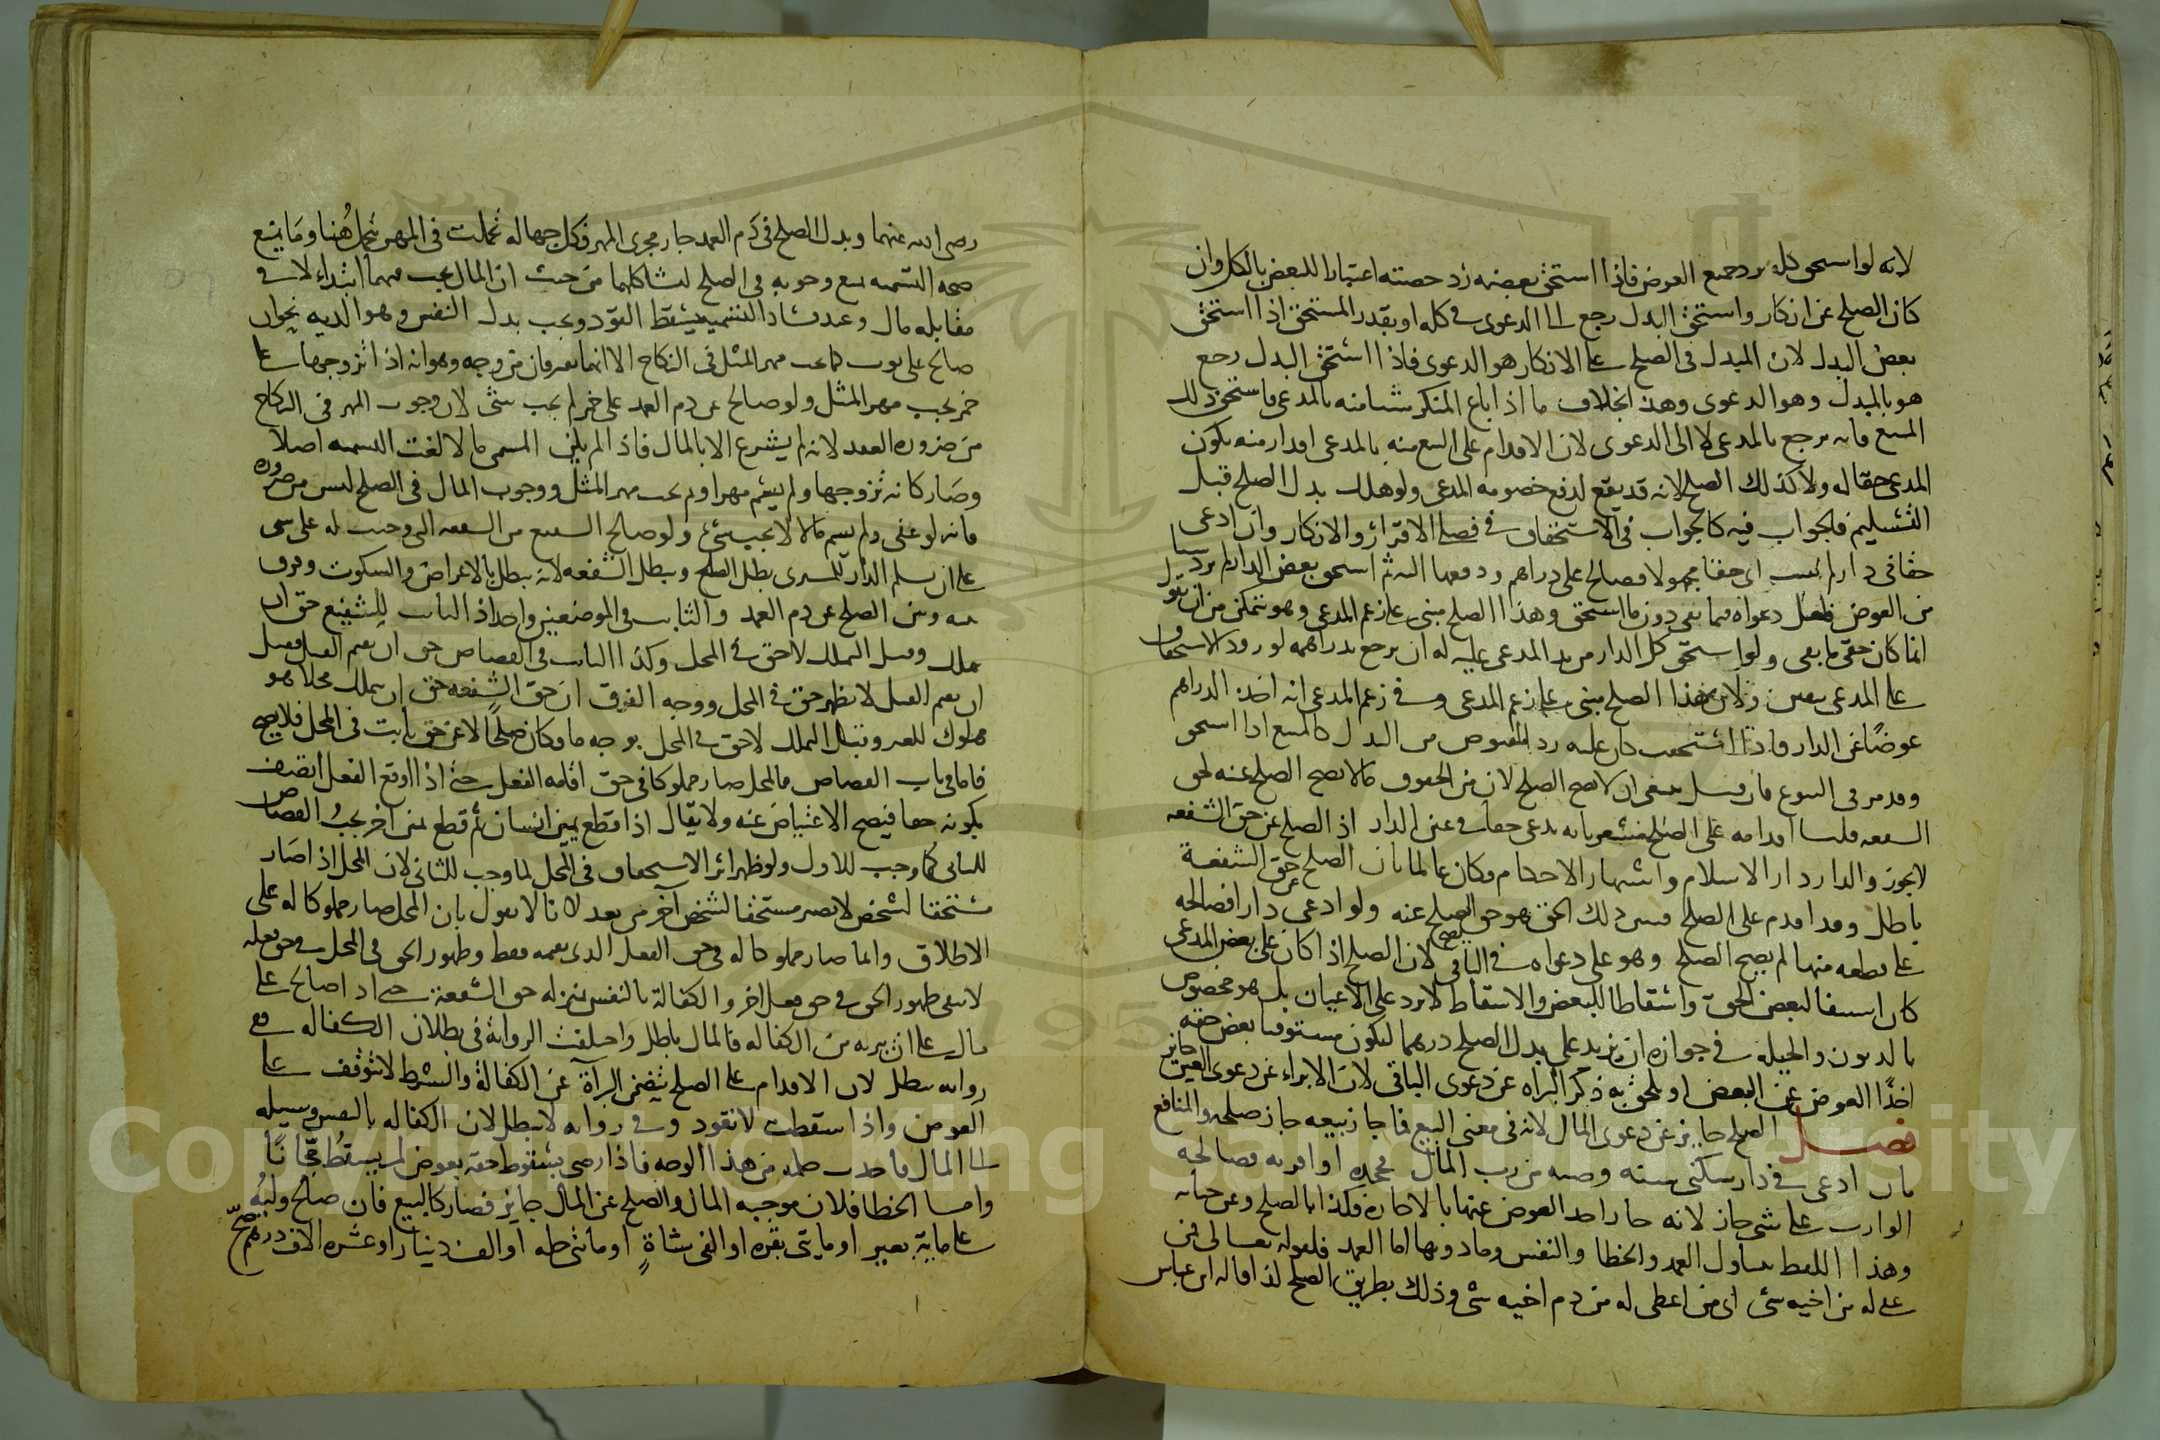 لانه لو استحق كله يرد جميع العوض فاذا استحق بعضه رد حصته اعتبارا للبعض بالكل وان
كان الصلح عن انكار واستحق البدل رجع الى الدعوى في كله او بقدر المستحق اذا استحق
بعض البدل لان المبدل في الصلح على الانكار هو الدعوى فاذا استحق البدل رجع
هو بالمبدل وهو الدعوى وهذا بخلاف ما اذا باع المنكر شيا منه بالمدعى فاستحق ذلك
المبيع فانه يرجع بالمدعى لا الى الدعوى لان الاقدام على البيع منه بالمدعى اقرار منه بكون
المدعى حقا له ولا كذلك الصلح لانه قد يقع لدفع خصومه المدعى ولو هلك بدل الصلح قبل
التسليم فالجواب فيه كالجواب في الاستحقاق في فصلي الاقرار والانكار وان ادعى
حقا في دار لم يبين اى حقا مجهولا فصالح على دراهم ودفعها اليه ثم استحق بعض الدار لم يرد شيا
من العوض فلعل دعواه فيما بقى دون ما استحق وهذا الصلح مبنى على زعم المدعى وهو متمكن من ان يقول
انما كان حقي ما بقى ولو استحق كل الدار من يد المدعى عليه له ان يرجع بدراهمه لورود الاستحقاق
على المدعى بيقين ولان هذا الصلح مبنى على زعم المدعى وفي زعم المدعى انه اخذ الدراهم
عوضًا عن الدار فاذا استحقت كان عليه رد المقبوض من البدل كالمبيع اذا استحق
وقد مر في البيوع فان قيل ينبغى ان لا يصح الصلح لان من الحقوق ما لا يصح الصلح عنه كحق
الشفعه قلنا اقدامه على الصلح مشعر بانه يدعى حقا في عين الدار اذ الصلح عن حق الشفعه
لا يجوز والدار دار الاسلام واشتهار الاحكام فكان عالما بان الصلح عن حق الشفعة
باطل وقد اقدم على الصلح فبين ذلك الحق فهو حق يصح الصلح عنه ولو ادعى دارا فصالحه
على قطعه منها لم يصح الصلح وهو على دعواه في الباقى لان الصلح اذا كان على بعض المدعى
كان استيفا لبعض الحق واسقاطا للبعض والاسقاط لا يرد على الاعيان بل هو مخصوص
بالديون والحيله في جوازه ان يزيد على بدل الصلح درهما ليكون مستوفيا بعض حقه
اخذًا العوض عن البعض او يلحق به ذكر البراه عن دعوى الباقى لان الابراء عن دعوى العين جايز
فصل الصلح جايز عن دعوى المال لانه في معنى البيع فما جاز بيعه جاز صلحه والمنافع
بان ادعى في دار سكنى سنه وصيه من رب المال فجحده او اقر به فصالحه
الوارث على شى جاز لانه جاز اخذ العوض عنها بالاجارة فكذا بالصلح وعن جنايه
وهذا اللفظ يتناول العمد والخطا والنفس وما دونها اما العمد فلقوله تعالى فمن
عفى له من اخيه شى اى من اعطى له من دم اخيه شى وذلك بطريق الصلح لذا قاله ابن عباس
رضى الله عنهما وبدل الصلح في دم العمد جار مجرى المهر فكل جهاله تحملت في المهر تتحمل هُنا وما يمنع
صحه التسميه يمنع وجوبه في الصلح لتشاكلهما من حيث ان المال يجب فيهما ابتداء لا في
مقابله مال وعند فساد التسميه يسقط القود ويجب بدل النفس وهو الديه نحو ان
صالح على ثوب كما يجب مهر المثل في النكاح الا انهما يفترقان من وجه وهو انه اذا تزوجها على
خمر يجب مهر المثل ولو صالح عن دم العمد على خمر لم يجب شى لان وجوب المهر في النكاح
من ضروره العقد لانه لم يشرع الا بالمال فاذا لم يكن المسمى مالا لغت التسميه اصلا
وصار كانه تزوجها ولم يسم مهرا ولم يجب مهر المثل ووجوب المال في الصلح ليس من ضروره
فانه لو عفى ولم يسم مالا لا يجب شئ ولو صالح الشفيع من الشفعه التى وجبت له على شى
على ان يسلم الدار للمشترى بطل الصلح وتبطل الشفعه لانه تبطل بالاعراض والسكوت وفرق
بينه وبين الصلح عن دم العمد والثابت في الموضعين واحد اذ الثابت للشفيع حق ان
يملك وقبل التملك لا حق في المحل وكذا الثابت في القصاص حق ان يقيم الفعل وقبل
ان يقيم الفعل لا يظهر حق في المحل ووجه الفرق ان حق الشفعه حق ان يملك محلا هو
مملوك للغير وقبل التملك لا حق في المحل بوجه ما فكان صلحًا لا عن حق ثابت في المحل فلا يصح
فاما في باب القصاص فالمحل صار مملوكا في حق اقامه الفعل حتى اذا اوقع الفعل اتصف
بكونه حقا فيصح الاعتياض عنه ولا يقال اذا قطع يمين انسان ثم قطع يمنى اخر يجب القصاص
للثانى كما وجب للاول ولو ظهر اثر الاستحقاق في المحل لما وجب للثانى لان المحل اذا صار
مستحقا لشخص لا يصير مستحقا لشخص آخر من بعد لانا لا نقول بان المحل صار مملوكا له على
الاطلاق وانما صار مملوكا له في حق الفعل الذى يقيمه فقط وظهور الحق في المحل في حق فعله
لا ينفى ظهور الحق في حق فعل اخر والكفالة بالنفس بمنزله حق الشفعة حتى اذا صالح على
مال على ان يبريه من الكفاله فالمال باطل واختلفت الروايه في بطلان الكفاله في
روايه تبطل لان الاقدام على الصلح يتضمن البرآة عن الكفالة والبرآة لا تتوقف على
العوض واذا سقطت لا تعود وفي روايه لا تبطل لان الكفاله بالنفس وسيله
الى المال فاخذت حكمه من هذا الوجه فاذا رضى بسقوط حقه بعوض لم يسقط مجّانًا
واما الخطا فلان موجبه المال والصلح عن المال جايز فصار كالبيع فان صالح وليُه
على مايه بعير او مايتى بقره او الفى شاةٍ او مايتى حله او الف دينار او عشره الاف درهم صح